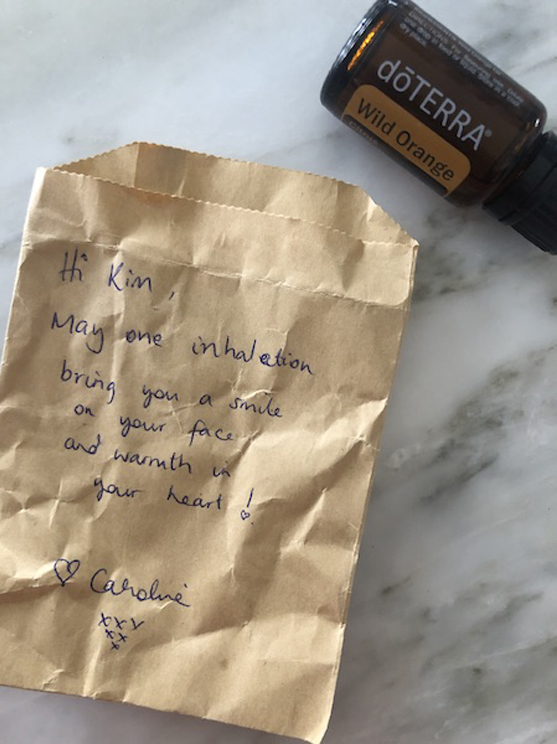 dōTERRA®
Wild Orange
Hi Kim,
May one inhalation
bring you a smile
on your face
and warmth in
your heart!
♡ Caroline
xxx
xx
x